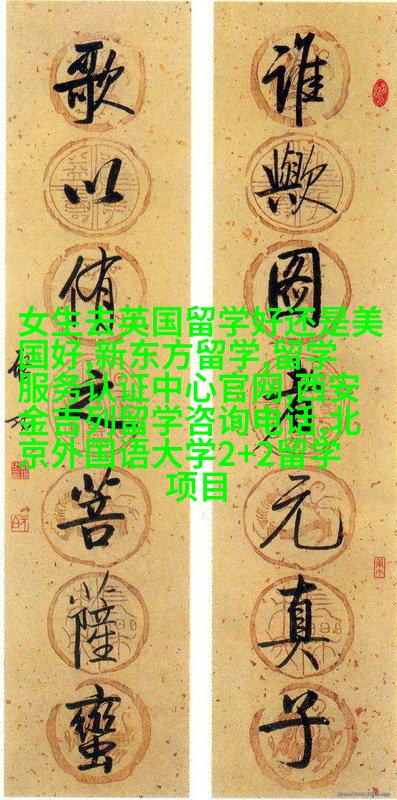 谁歟图者元真子
歌以侑之菩薩蠻
女生去英国留学好还是美
国好,新东方留学,留学
服务认证中心官网,西安
金吉列留学咨询电话,北
京外国语大学2+2留学
项目